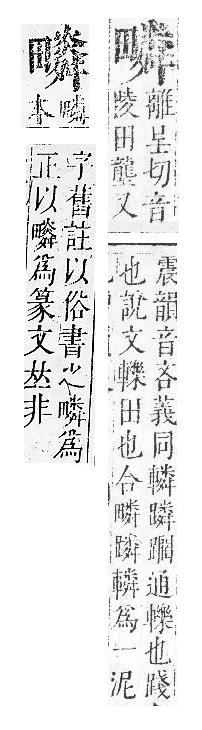 疄
離呈切音
陵田壟又
震韻音吝義同轔蹸躙通轢也踐
也說文轢田也合疄蹸轔爲一泥
疄
本
字舊註以俗書之疄爲
正以疄爲篆文𠀤非